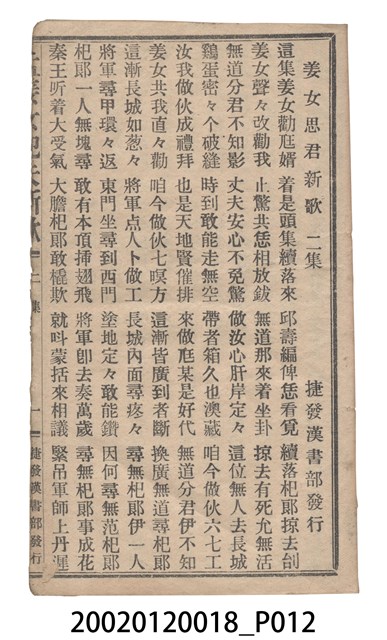 姜女思君新歌 二集 捷發漢書部發行
這集姜女勸尪婿 着是頭集續落來 邱壽編俾恁看覓 續落杞郎掠去刣
姜女聲々改勸我 止驚共恁相放鈸 無道那來着坐卦 掠去有死允無活
無道分君不知影 丈夫安心不免驚 做汝心肝岸定々 這位無人去長城
鷄蛋密々个破縫 時到敢能走無空 帶者箱久也澳藏 咱今做伙六七工
汝我做伙成禮拜 也是天地賢催排 來做尪某是好代 無道分君伊不知
姜女共我直々勸 咱今做伙七暝方 這漸皆廣到者斷 換廣無道尋杞郎
這漸長城如葱々 將軍點人卜做工 長城內面尋疼々 尋無杞郎伊一人
將軍尋甲環々返 東門坐尋到西門 塗地定々敢能鑽 因何尋無范杞郎
杞郎一人無塊尋 敢有本項挿翅飛 將軍卽去奏萬歲 尋無杞郎事成花
秦王听着大受氣 大膽杞郎敢橇欺 就叫蒙括來相議 緊吊軍師上丹墀
二集 一 捷發漢書部發行